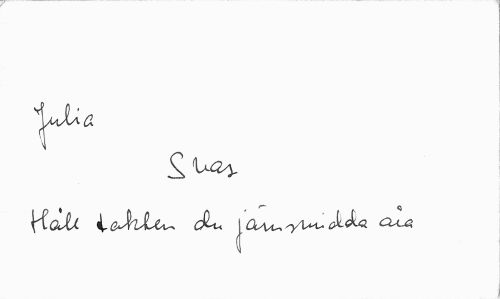 Julia
Svar
Håll takten du järnsmidda åra